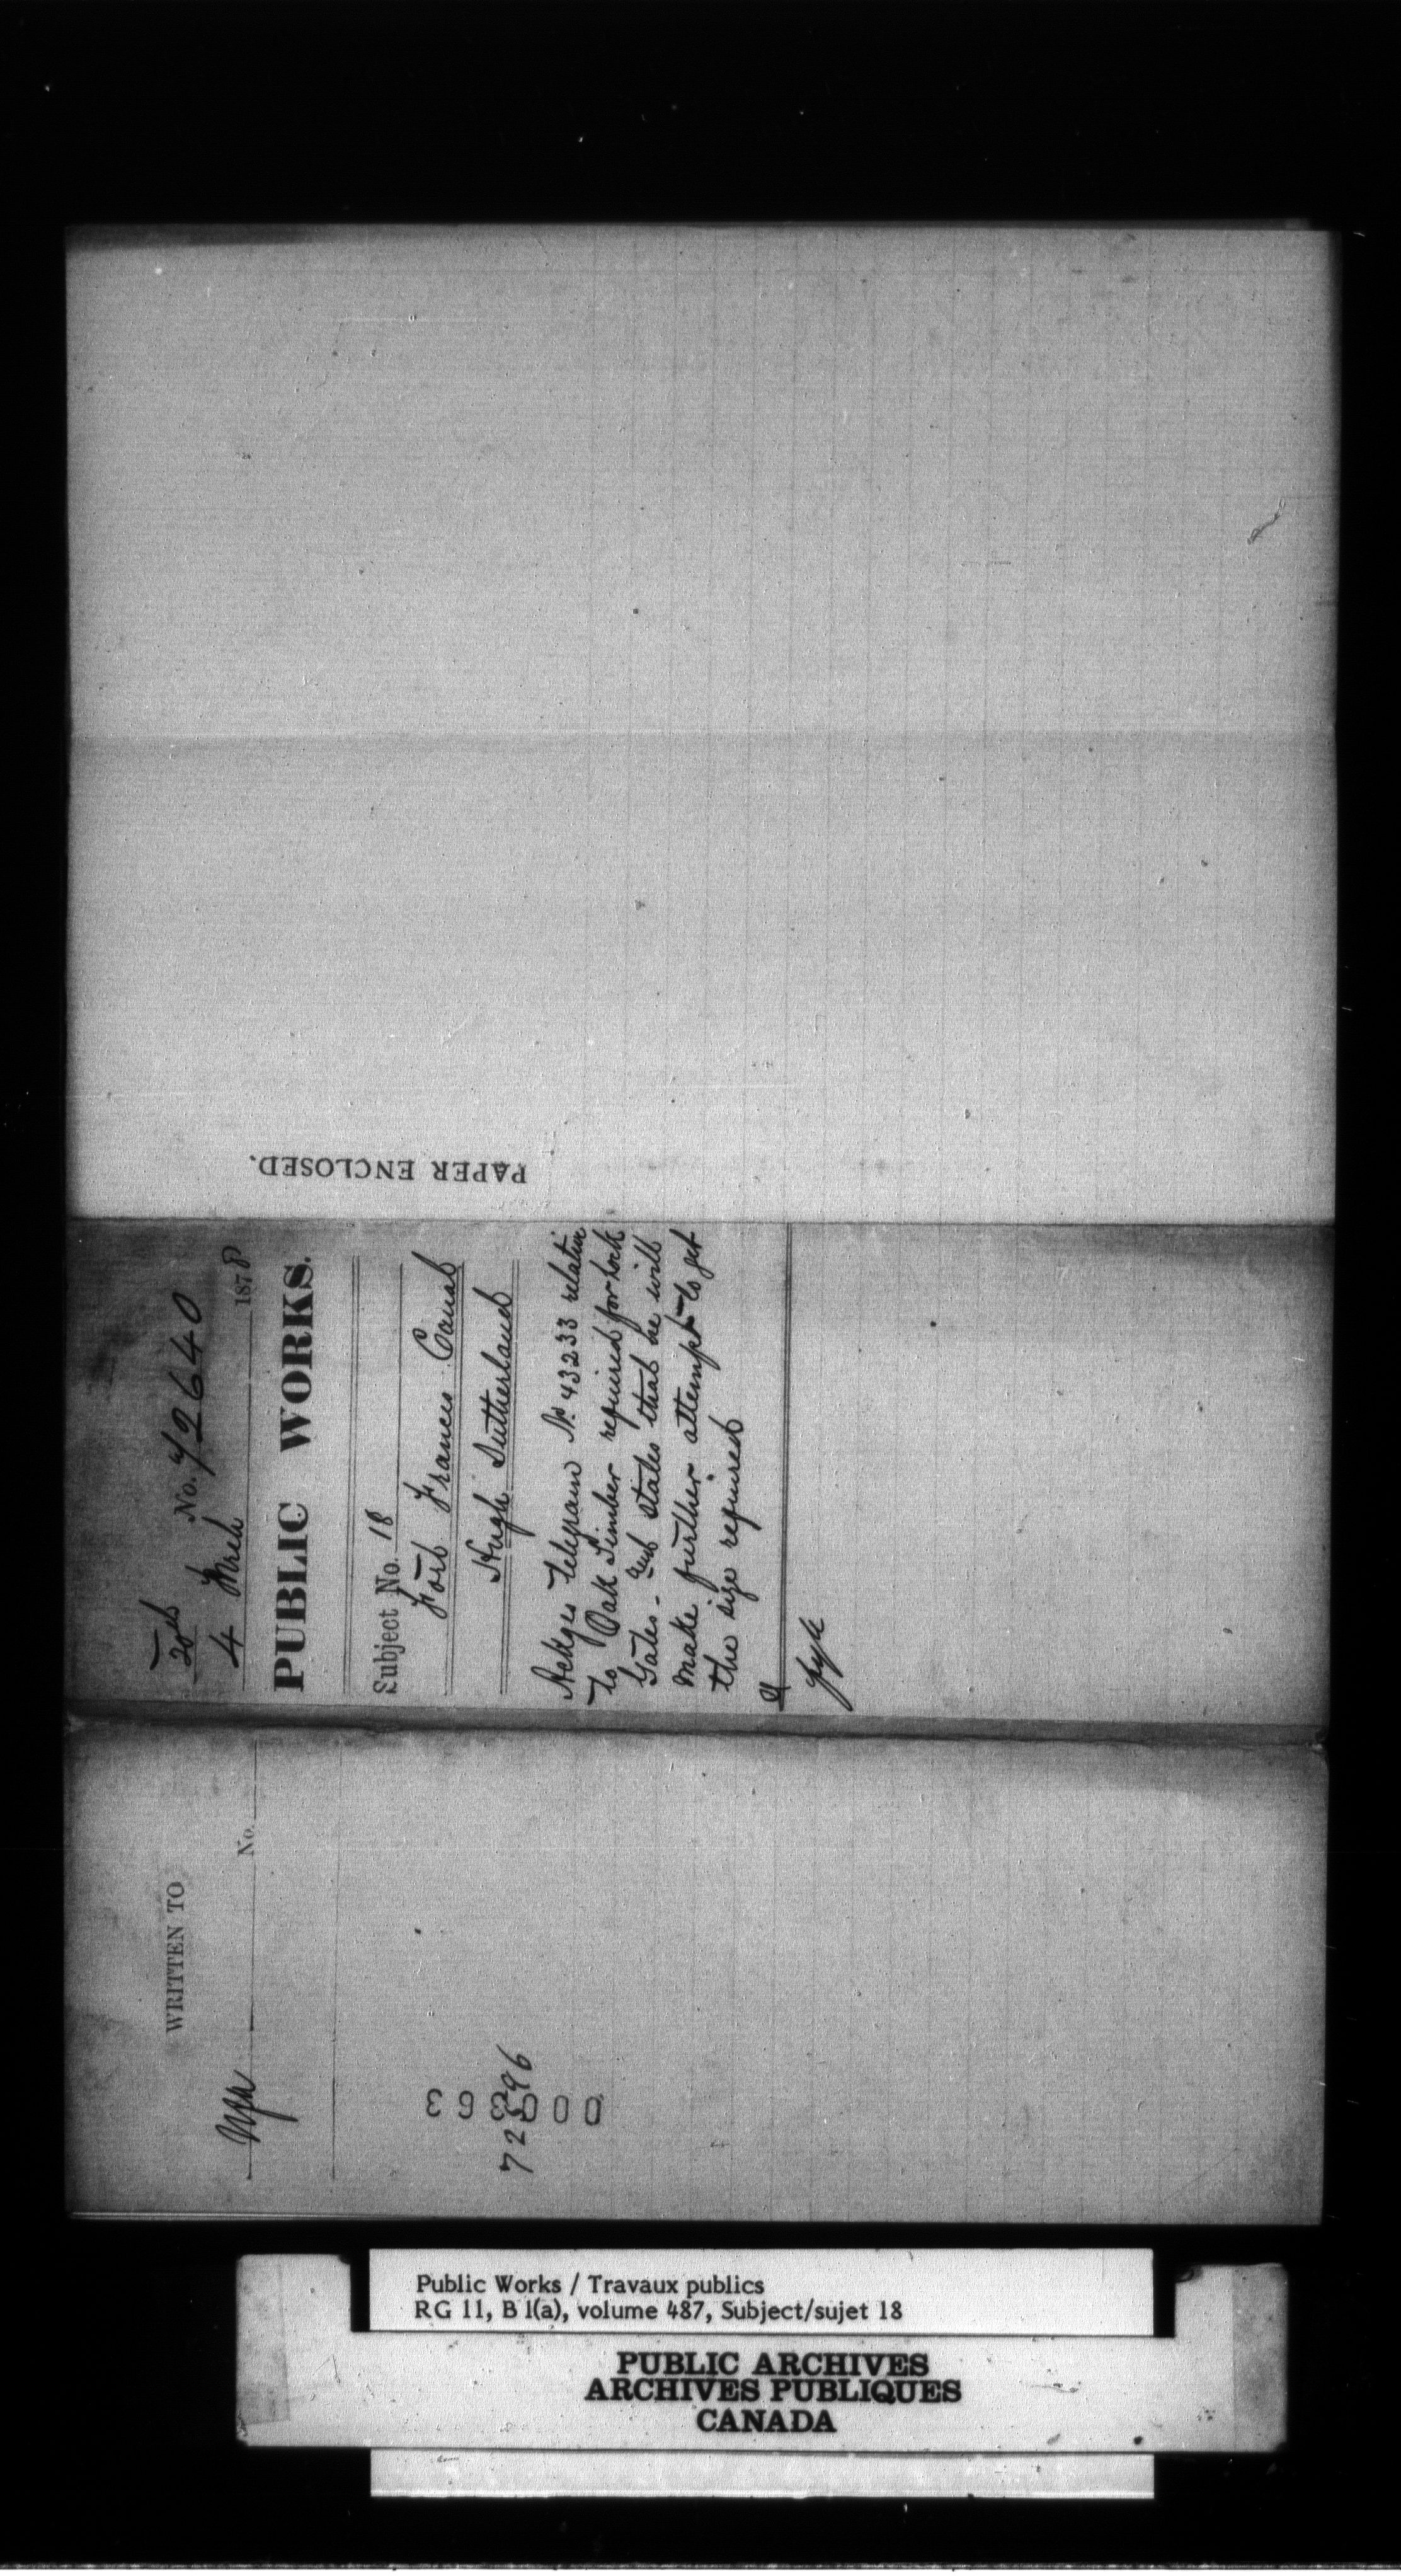 PAPER ENCLOSED.
No. 72640
4 Mrch 1878
PUBLIC WORKS.
Subject No. 18
Fort Frances Canal
Hugh Sutherland
Ackges telegram No. 43233 relative
to Oak Timber required for Lock
Gates - and states that he will
make further attempt to get
the size required
WRITTEN TO
No.
72596
000363
Public Works / Travaux publics
RG 11, B 1(a), volume 487, Subject/sujet 18
PUBLIC ARCHIVES
ARCHIVES PUBLIQUES
CANADA